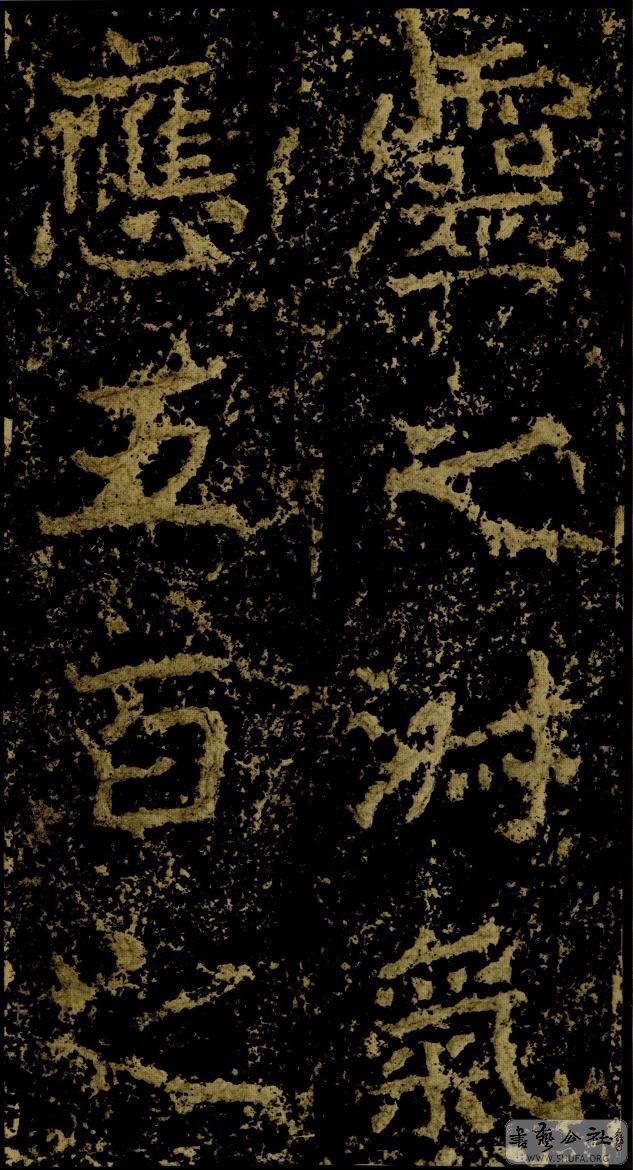 靈之淑氣
應五百之
書藝公社
WWW.SHUFA.ORG